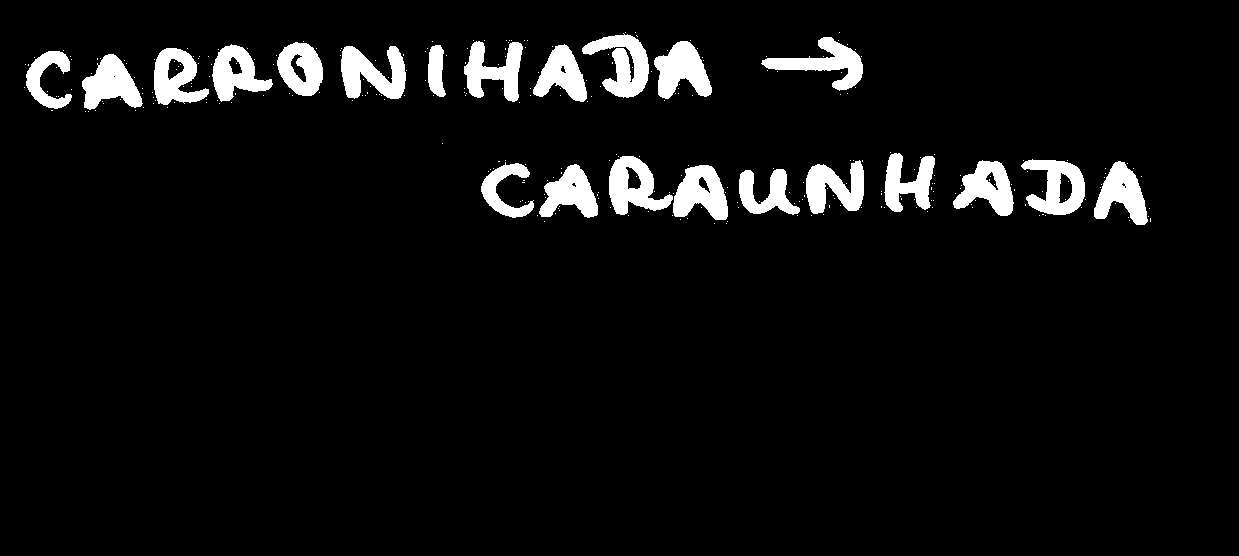 CARRONIHADA →
CARAUNHADA